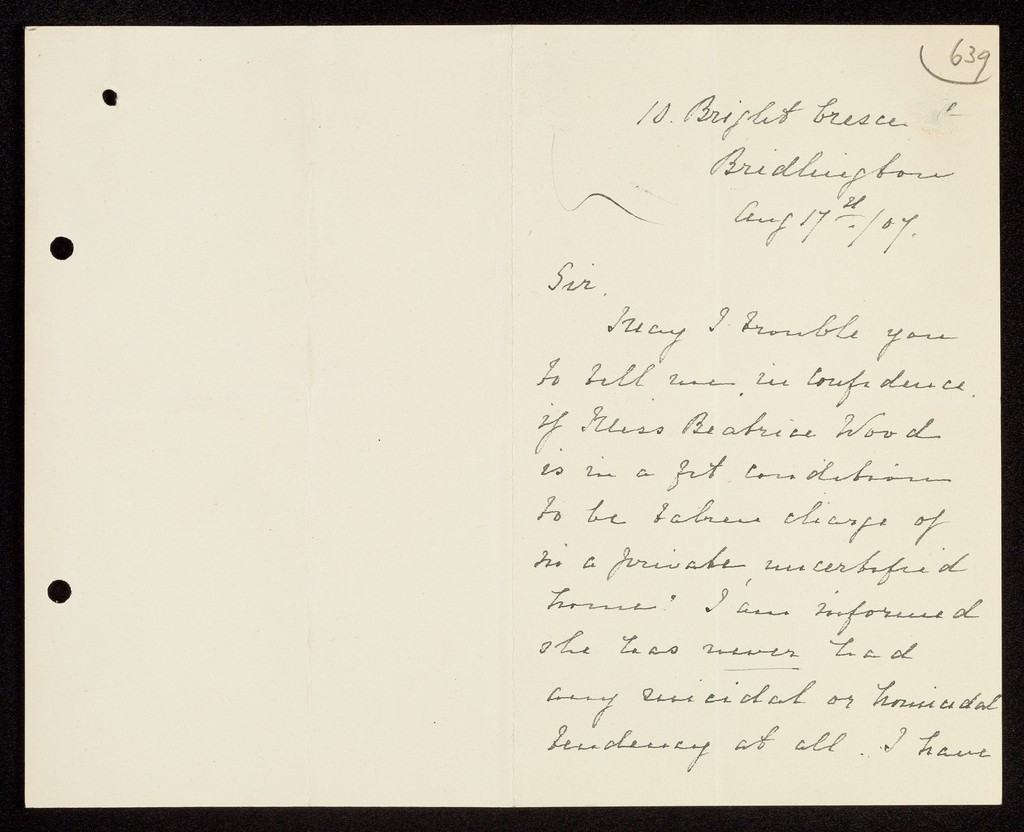 639
10. Bright Cresce
Bridlington
Aug 17th/07.
Sir,
May I trouble you
to tell me, in confidence,
if Miss Beatrice Wood
is in a fit condition
to be taken charge of
in a private, uncertified
home? I am informed
she has never had
any suicidal or homicidal
tendency at all. I have